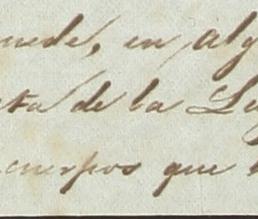 uede, en alg
ta de la Le
cuerpos que